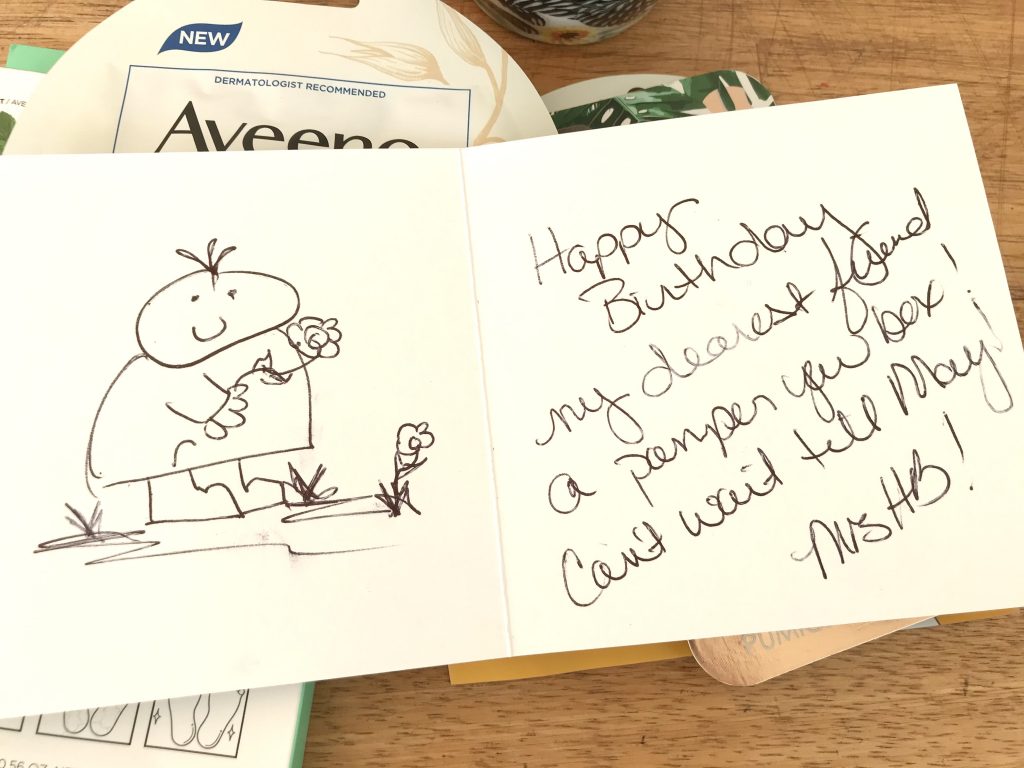 NEW
DERMATOLOGIST RECOMMENDED
Aveeno
Happy
Birthday
my dearest friend
a pamper you box!
Can't wait till May!
Mrs HB!
PUMIC
0.56 OZ